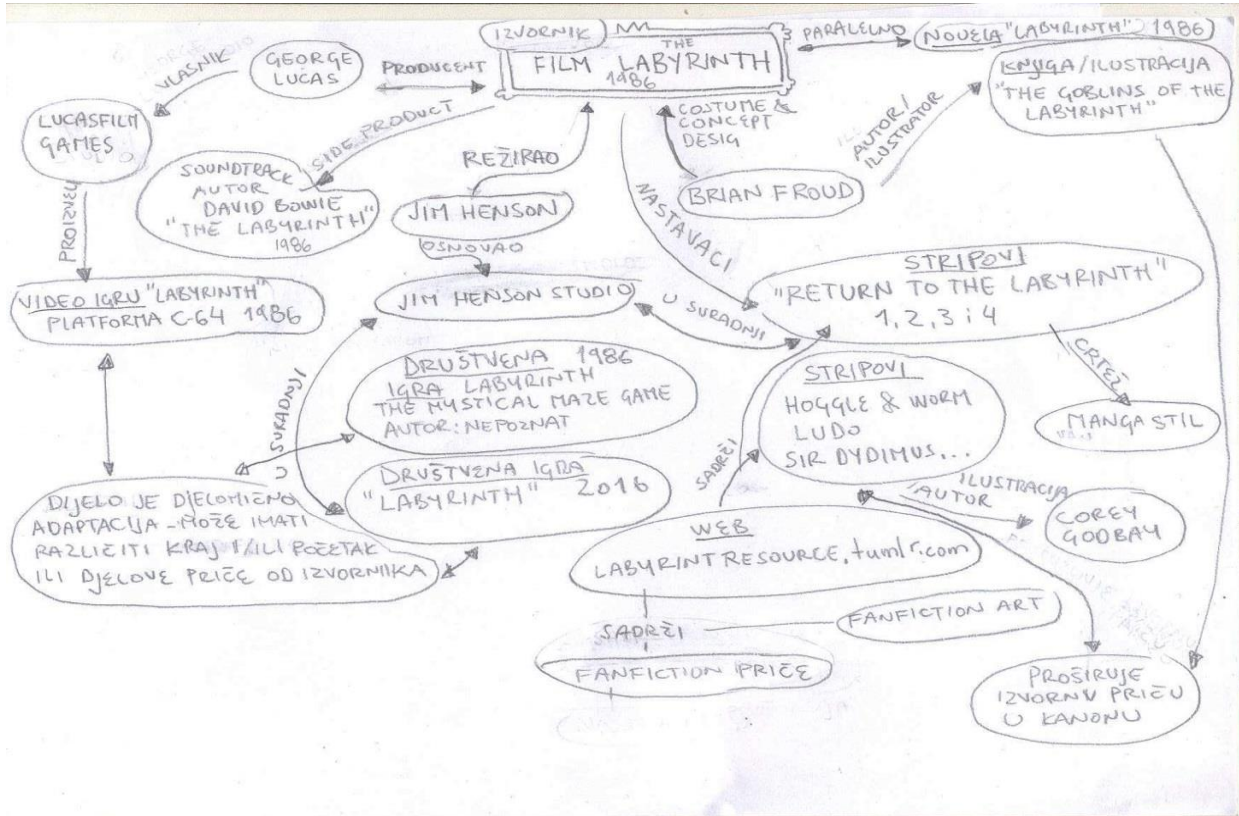 IZVORNIK
THE
FILM LABYRINTH
1986
PARALELNO
NOVELA "LABYRINTH" 1986
KNJIGA/ILUSTRACIJA
"THE GOBLINS OF THE
LABYRINTH"
VLASNIK
GEORGE
LUCAS
PRODUCENT
LUCASFILM
GAMES
SIDE PRODUCT
SOUNDTRACK
AUTOR
DAVID BOWIE
"THE LABYRINTH"
1986
REŽIRAO
JIM HENSON
COSTUME &
CONCEPT
DESIG
BRIAN FROUD
AUTOR/
ILUSTRATOR
PROIZVEU
OSNOVAO
NASTAVACI
VIDEO IGRU "LABYRINTH"
PLATFORMA C-64 1986
JIM HENSON STUDIO
U SURADNJI
STRIPOVI
"RETURN TO THE LABYRINTH"
1, 2, 3 i 4
CRTEŽ
MANGA STIL
U SURADNJI
DRUŠTVENA 1986
IGRA LABYRINTH
THE MYSTICAL MAZE GAME
AUTOR: NEPOZNAT
STRIPOVI
HOGGLE & WORM
LUDO
SIR DYDIMUS,...
SADRŽI
DRUŠTVENA IGRA
"LABYRINTH" 2016
ILUSTRACIJA
/AUTOR
COREY
GODBAY
DIJELO JE DJELOMIČNO
ADAPTACIJA - MOŽE IMATI
RAZLIČITI KRAJ I/ILI POČETAK
ILI DJELOVE PRIČE OD IZVORNIKA
WEB
LABYRINTRESOURCE.tumlr.com
SADRŽI
FANFICTION ART
FANFICTION PRIČE
PROŠIRUJE
IZVORNU PRIČU
U KANONU